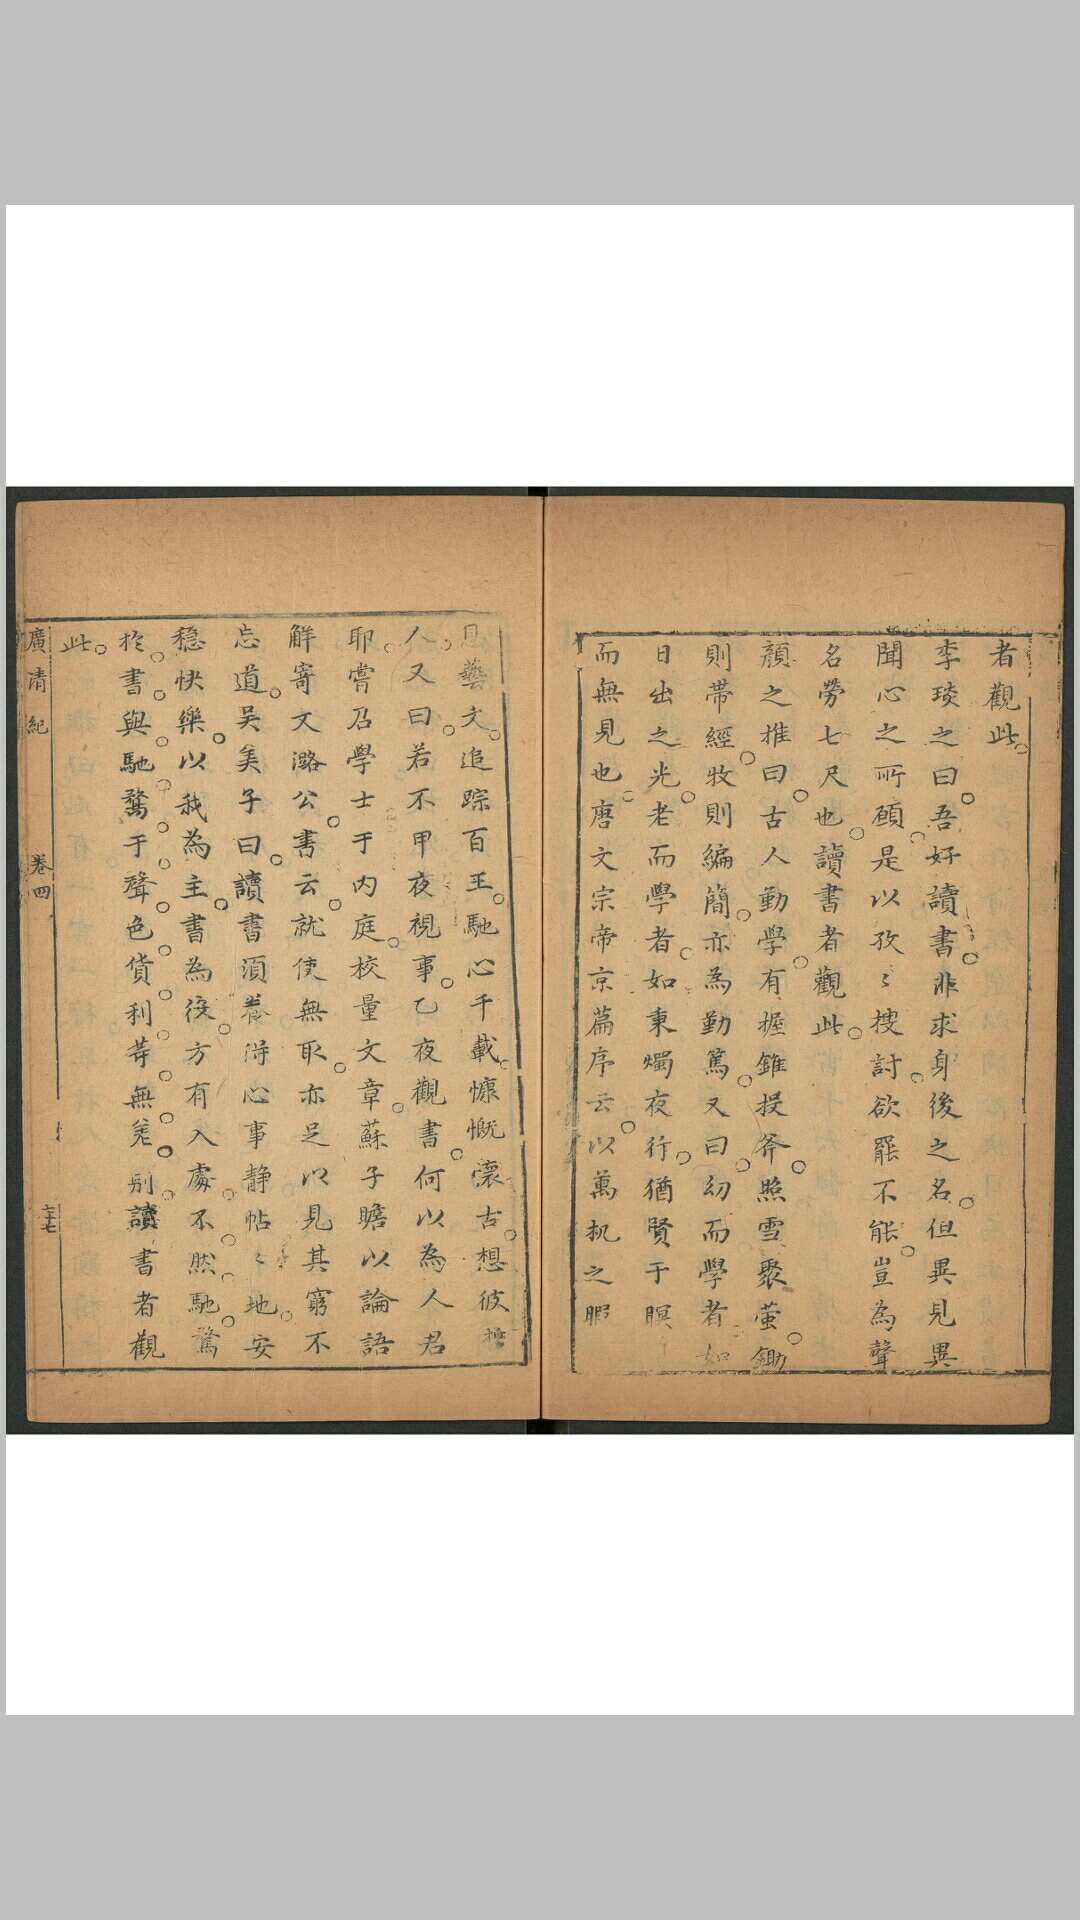 者觀此
李琰之曰吾好讀書非求身後之名但異見異
聞心之所願是以孜〻搜討欲罷不能豈為聲
名勞七尺也讀書者觀此
顏之推曰古人勤學有握錐投斧照雪聚螢鋤
則帶經牧則編簡亦為勤篤又曰幼而學者如
日出之光老而學者如秉燭夜行猶賢于瞑
而無見也唐文宗帝京篇序云以萬机之暇
藝文追踪百王馳心千載慷慨懷古想彼
人又曰若不甲夜視事乙夜觀書何以為人君
耶嘗召學士于内庭校量文章蘇子瞻以論語
解寄文潞公書云就使無取亦足以見其窮不
忘道吳美子曰讀書須養得心事静帖〻地安
穏快樂以我為主書為役方有入處不然馳騖
扵書與馳騖于聲色貨利等無差别讀書者觀
此
廣清紀 卷四 二十七